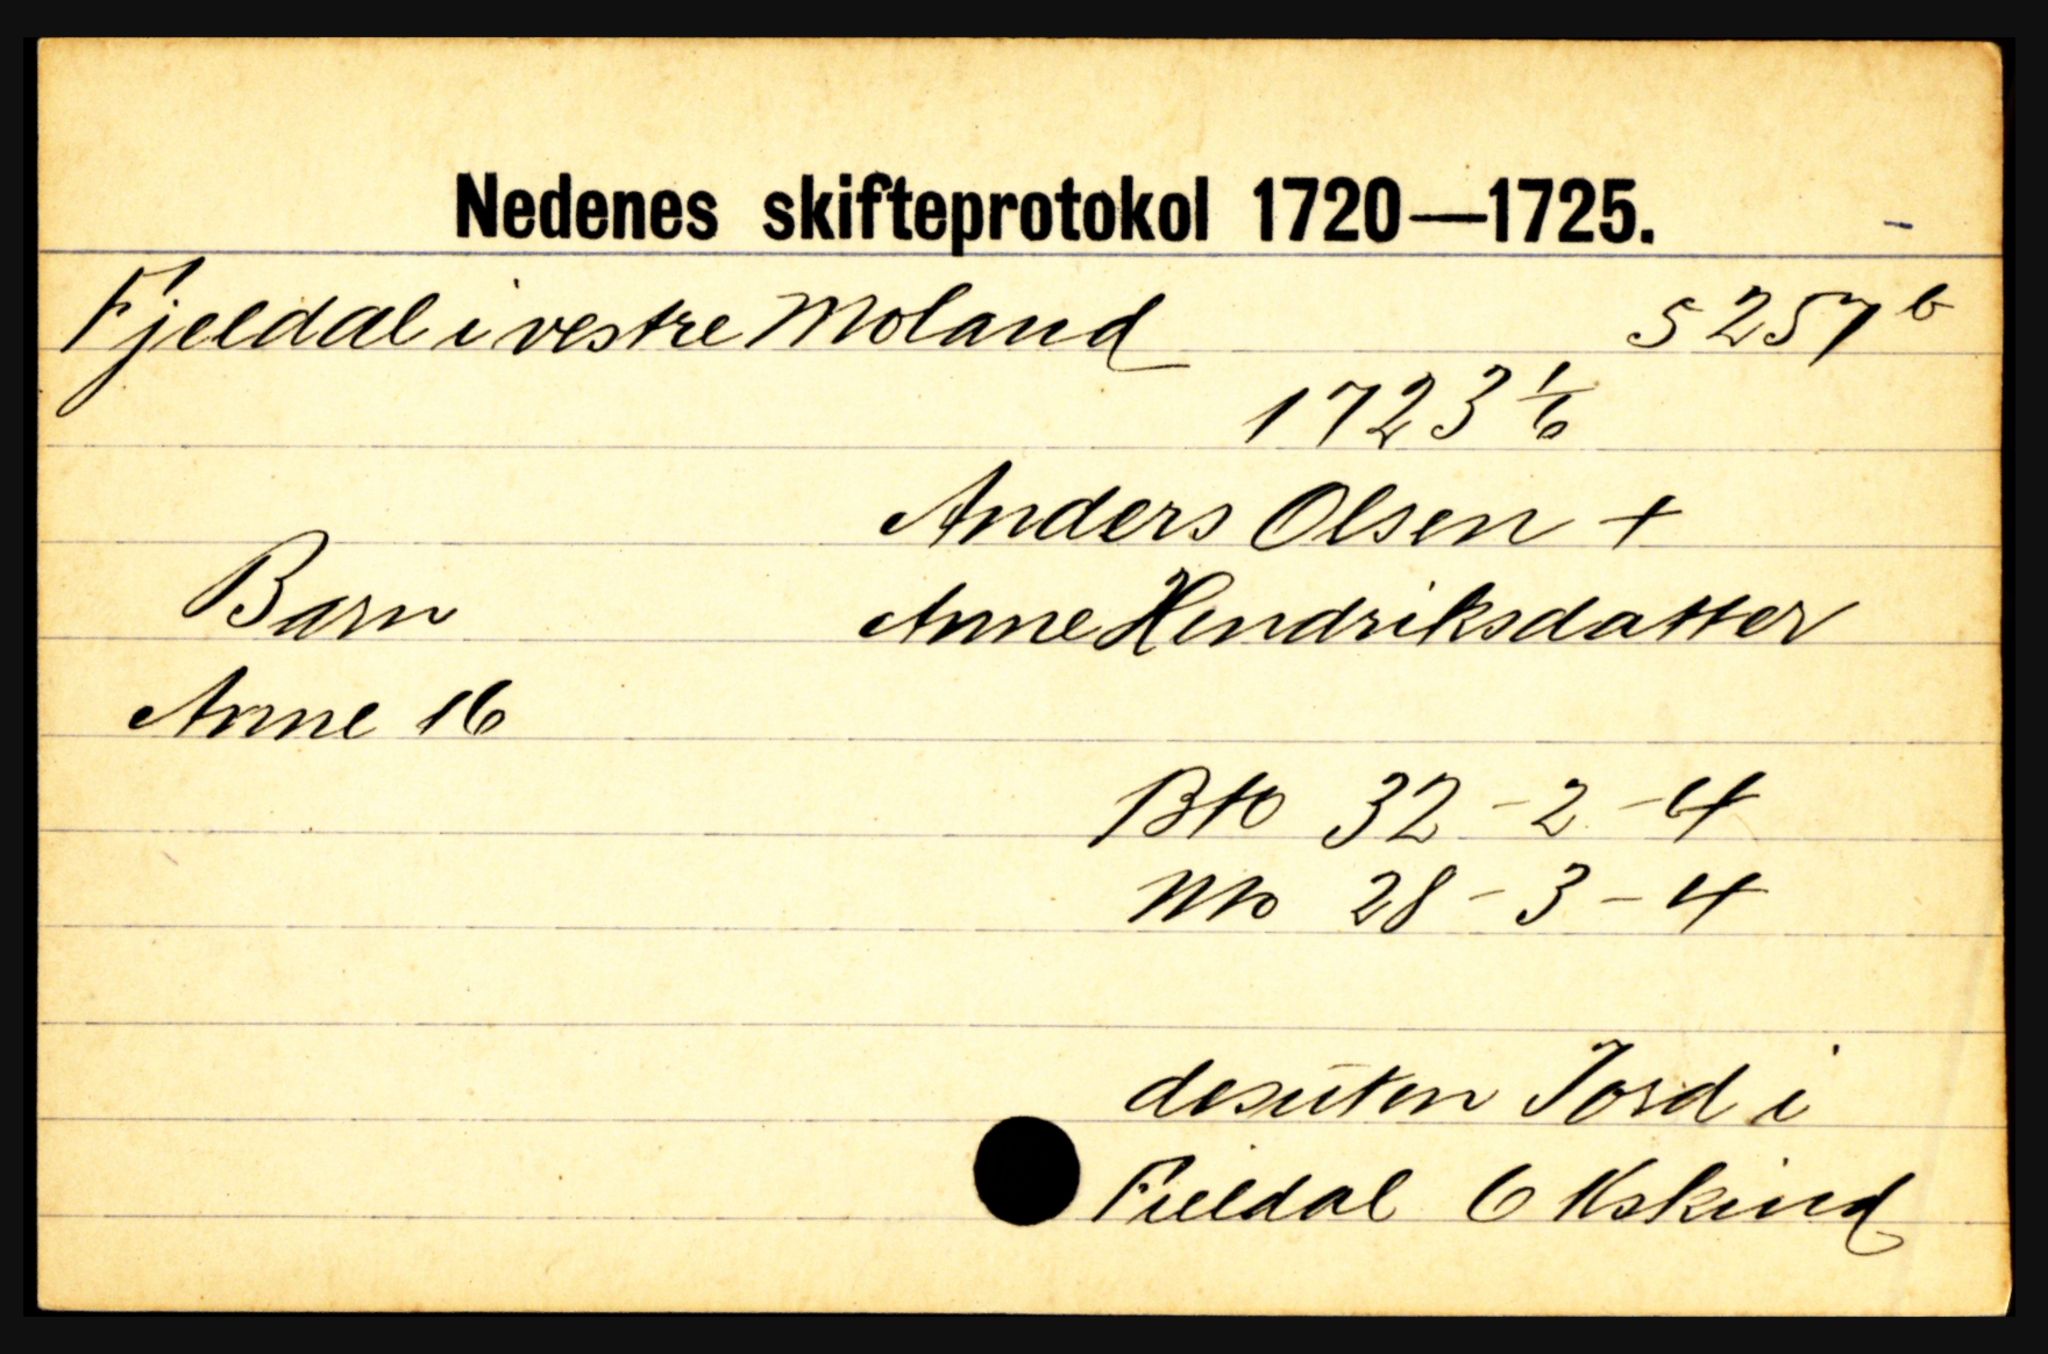 Nedenes skifteprotokol 1720—1725.
Fjeldal i vestre Moland 5257 b
1723 1/6
Anders Olsen +
Barn Anne Hendriksdatter
Anne 16
Bto 32 - 2 - 4
Nto 28 - 3 - 4
desuten Jord i
Fieldal 6 Kskind